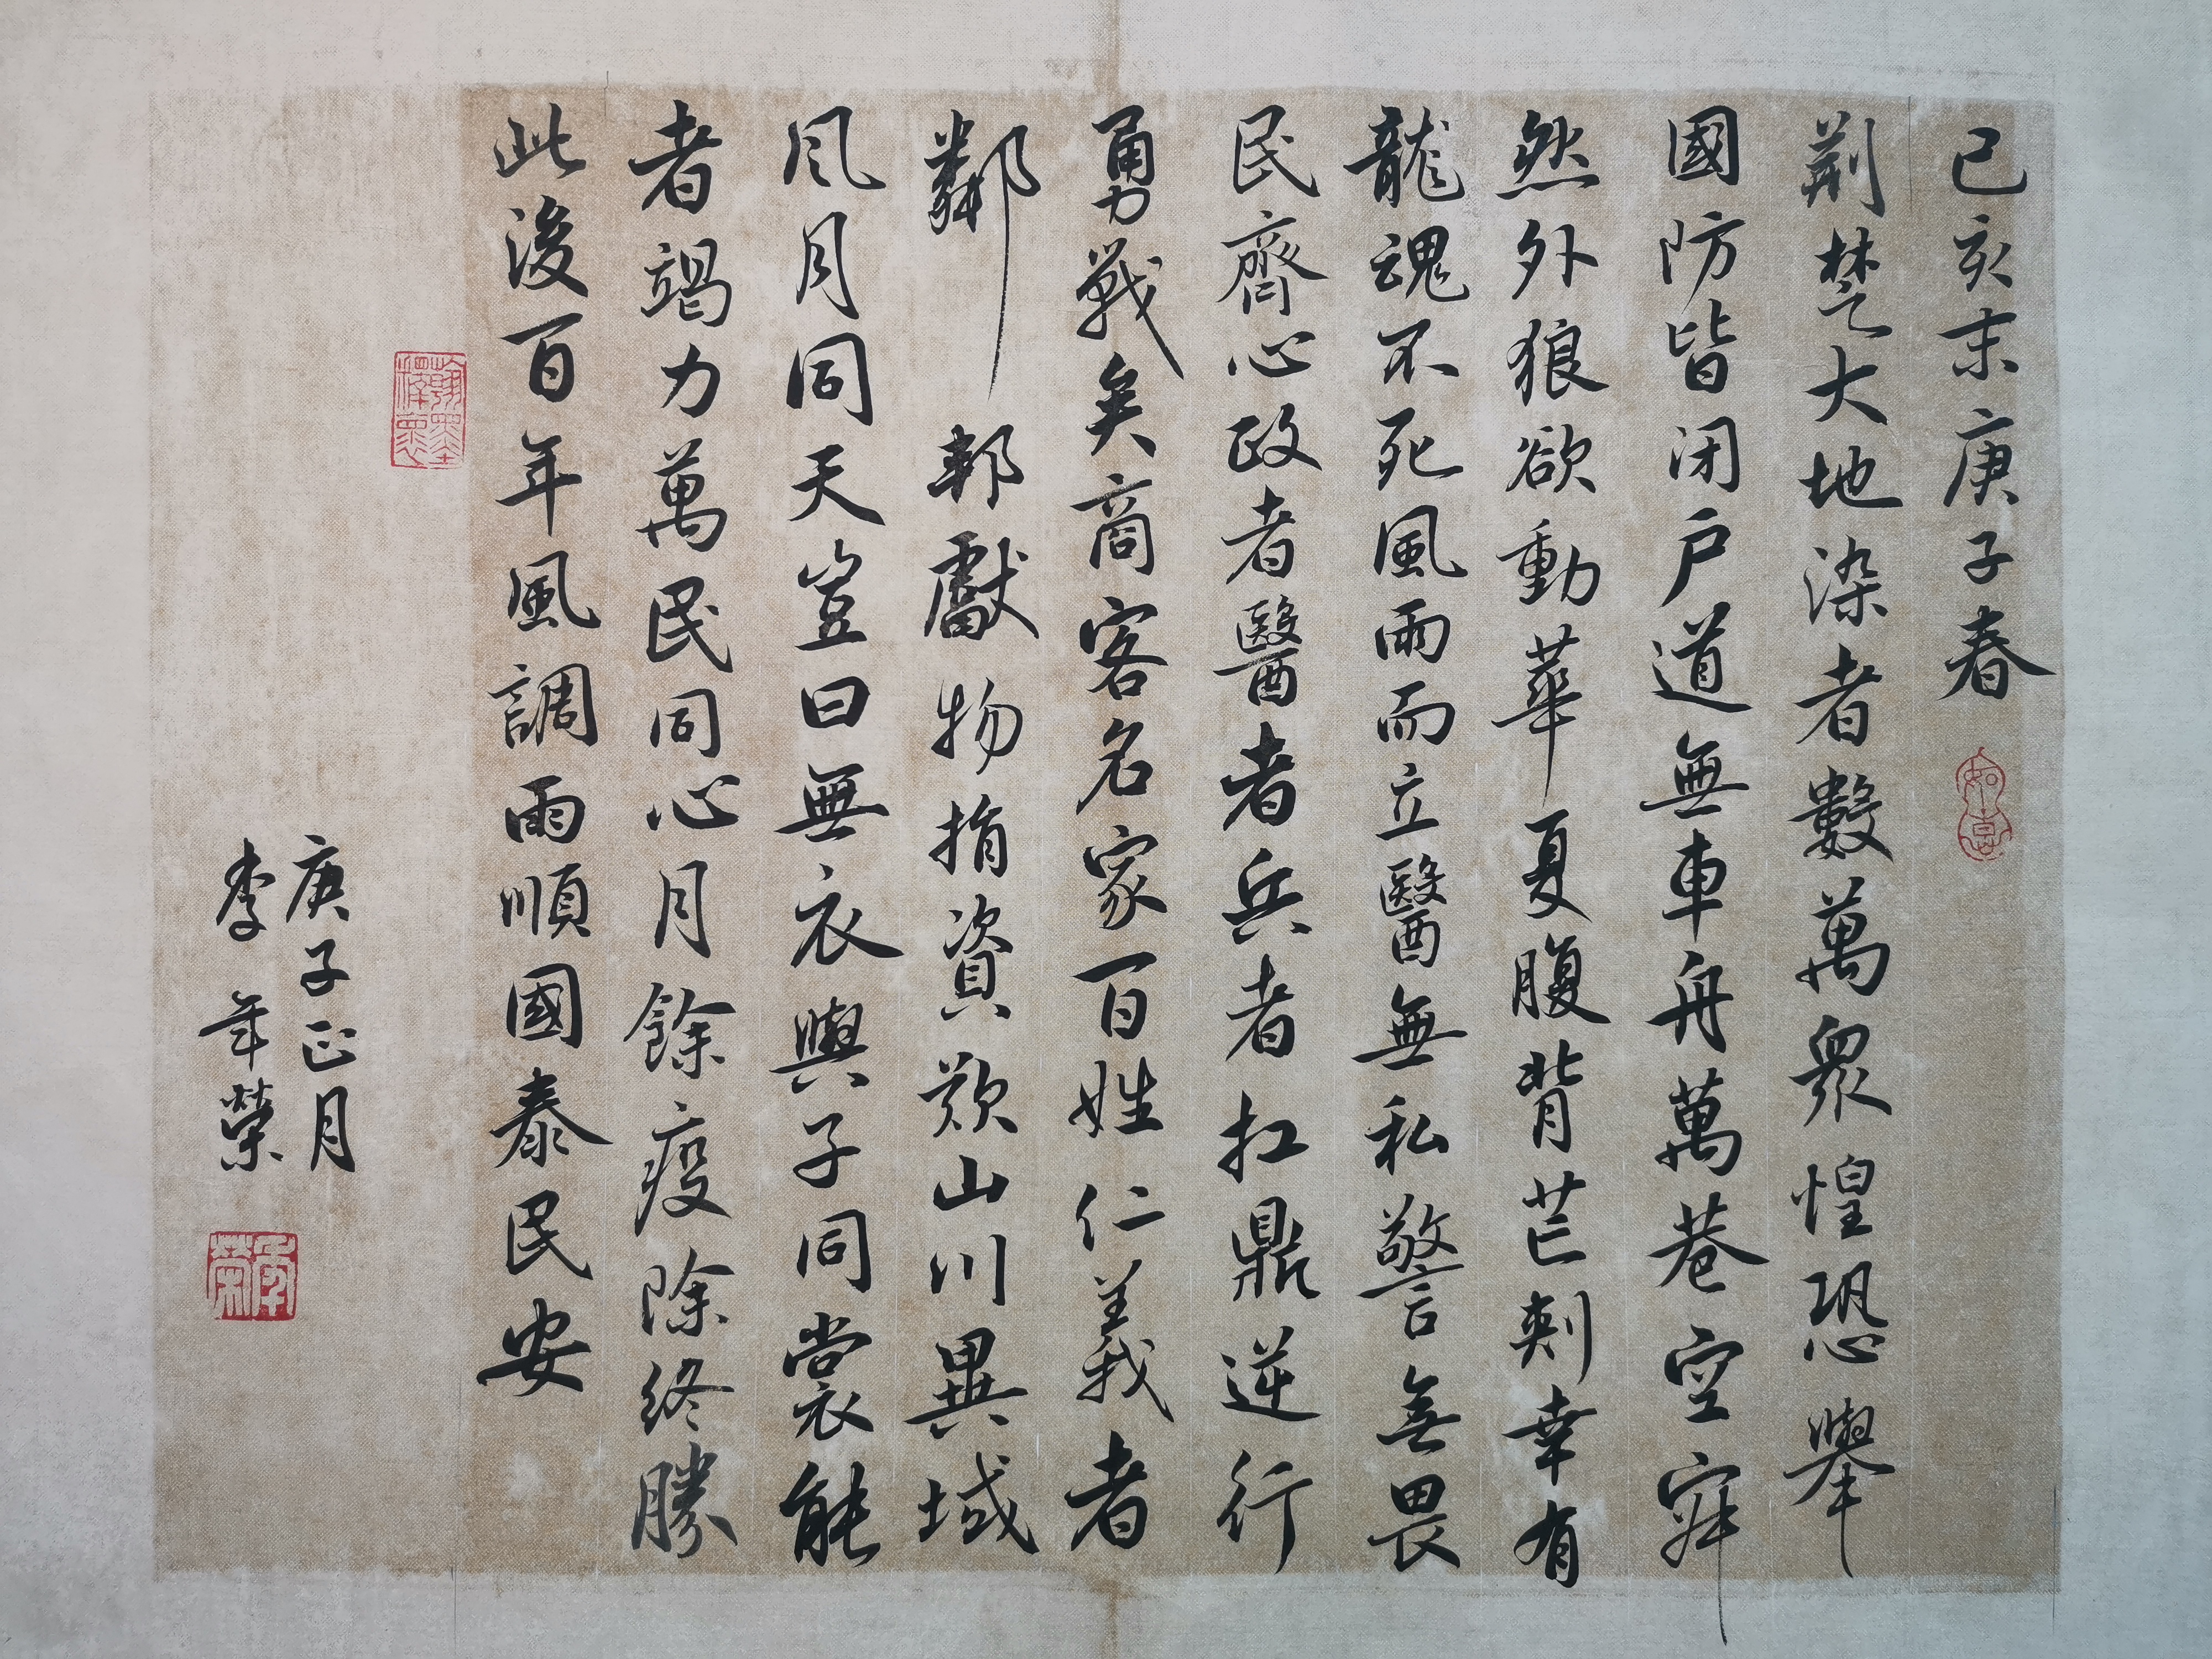 已亥末庚子春
荆楚大地染者數萬眾惶恐舉
國防皆闭户道無車舟萬巷空寂
然外狼欲動華夏腹背芒刺幸有
龍魂不死風雨而立醫無私警無畏
民齊心政者醫者兵者扛鼎逆行
勇戰矣商客名家百姓仁義者
鄰邦獻物捐資叹山川異域
风月同天豈曰無衣與子同裳能
者竭力萬民同心月餘疫除終勝
此後百年風調雨順國泰民安
庚子正月
李年榮